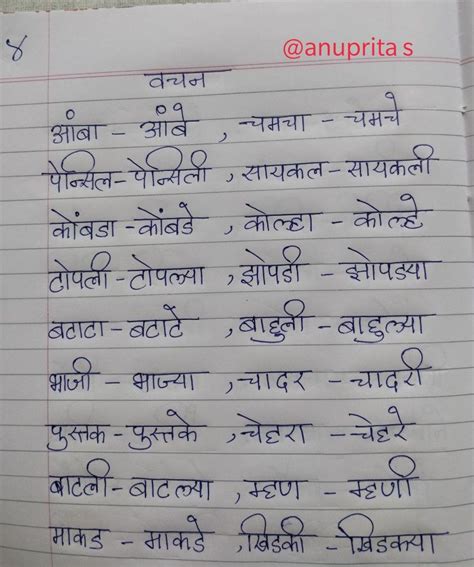 @anuprita s
४
वचन
आंबा - आंबे , चमचा - चमचे
पेन्सिल - पेन्सिली , सायकल - सायकली
कोंबडा - कोंबडे , कोल्हा - कोल्हे
टोपली - टोपल्या , झोपडी - झोपड्या
बटाटा - बटाटे , बाहुली - बाहुल्या
भाजी - भाज्या , चादर - चादरी
पुस्तक - पुस्तके , चेहरा - चेहरे
बाटली - बाटल्या , म्हण - म्हणी
माकड - माकडे , खिडकी - खिडक्या